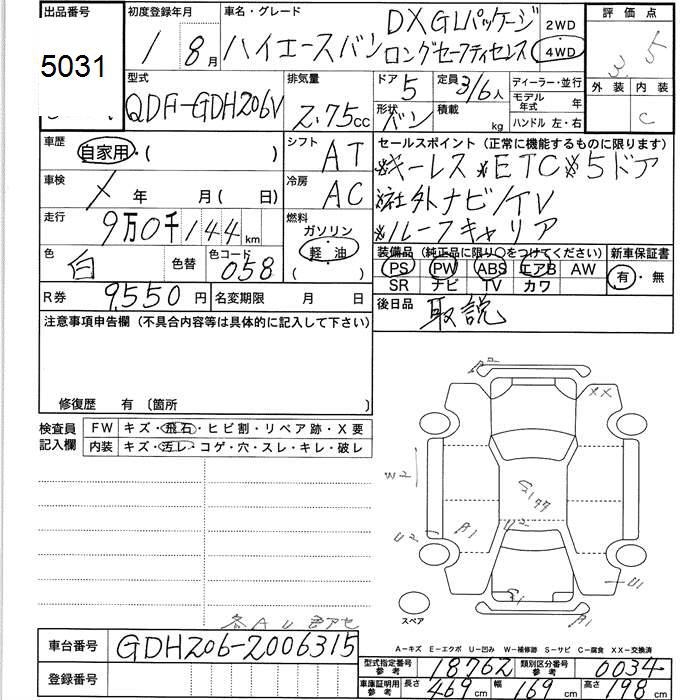 出品番号
5031
初度登録年月
1 8月
車名・グレード
ハイエースバン
DX GLパッケージ
ロングセーフティセレス
2WD
4WD
評価点
3.5
外装 内装
C
型式
QDF-GDH206V
排気量
2.75cc
ドア 5
形状 バン
定員 3/6人
積載 kg
ディーラー・並行
モデル年式 年
ハンドル 左・右
車歴
自家用・( )
シフト AT
車検
X 年 月( 日)
冷房 AC
走行
9万0千144km
燃料
ガソリン
軽油
( )
色
白
色替
色コード
058
R券 9,550円
名変期限 月 日
セールスポイント (正常に機能するものに限ります)
※キーレス※ETC※5ドア
※社外ナビ/TV
※ルーフキャリア
装備品 (純正品に限り○をつけてください)
PS PW ABS エアB AW
SR ナビ TV カワ
新車保証書
有・無
後日品
取説
注意事項申告欄 (不具合内容等は具体的に記入して下さい)
修復歴 有 〔箇所 〕
検査員記入欄
FW キズ・飛石・ヒビ割・リペア跡・X要
内装 キズ・汚レ・コゲ・穴・スレ・キレ・破レ
XX
W2
S1
77
U2
A1
U2
U1
S1
A1
スペア
各AU
A-キズ E-エクボ U-凹み W-補修跡 S-サビ C-腐食 XX-交換済
車台番号
GDH206-2006315
登録番号
型式指定番号参考
18762
類別区分番号参考
0034
車庫証明用参考
長さ 469cm
幅 169cm
高さ 198cm